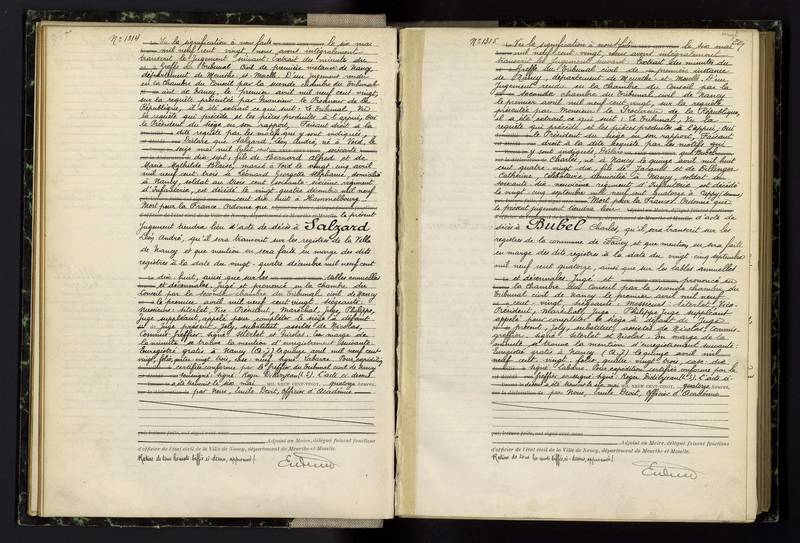 N° 1314
Vu la signification à nous faite le six mai
mil neuf cent vingt, nous avons intégralement
transcrit le jugement suivant: Extrait des minutes du
Greffe du Tribunal Civil de première instance de Nancy
département de Meurthe et Moselle. D'un jugement rendu
en la Chambre du Conseil par la seconde chambre du Tribunal
civil de Nancy, le premier avril mil neuf cent vingt,
sur la requête présentée par Monsieur le Procureur de la
République, il a été extrait ce qui suit: Le Tribunal, Vu
la requête qui précède et les pièces produites à l'appui, Ouï
le Président du siège en son rapport, Faisant droit à la
dite requête par les motifs qui y sont indiqués,
Déclare que Salzard Léon André, né à Void, le
mai mil huit cent soixante
dix sept, fils de Bernard Alfred et de
Marie Mathilde Blaise, marié à Void le vingt cinq avril
mil neuf cent trois à Léonard Georgette Stéphanie, domicilié
à Nancy, soldat au trois cent soixante sixième régiment
d'Infanterie, est décédé le vingt quatre décembre mil neuf
cent dix huit à Hammelbourg.
Mort pour la France. Ordonne que le présent
jugement tiendra lieu d'acte de décès à Salzard
Léon André, qu'il sera transcrit sur les registres de la Ville
de Nancy et que mention en sera faite en marge des dits
registres à la date du vingt-quatre décembre mil neuf cent
dix huit, ainsi que sur les tables annuelles
et décennales. Jugé et prononcé en la chambre du
Conseil par la seconde chambre du Tribunal civil de Nancy
le premier avril mil neuf cent vingt. Siégeants:
Messieurs: Sterlet, Vice Président, Maréchal, Juge, Philippe,
Juge suppléant, appelé pour compléter le siège à défaut
de Juge présent, Joly, substitut, assistés de Nicolas,
Commis greffier. Signé: Sterlet et Nicolas. En marge de
la minute se trouve la mention d'enregistrement suivante:
Enregistré gratis à Nancy (A.J) le quinze avril mil neuf cent
vingt, folio vingt trois, case neuf. Signé: Cabasse. Pour expédition
certifiée conforme par le Greffier du Tribunal civil de Nancy
L'acte ci dessus
a été transcrit le six mai MIL NEUF CENT VINGT, quatorze heures,
par Nous, Emile Droit, Officier d'Académie
Adjoint au Maire, délégué faisant fonctions
d'officier de l'état civil de la Ville de Nancy, département de Meurthe-et-Moselle.
Rature de tous les mots biffés ci-dessus, approuvée!
N° 1315
Vu la signification à nous faite le six mai
mil neuf cent vingt, nous avons intégralement
transcrit le jugement suivant: Extrait des minutes du
Greffe du Tribunal civil de première instance
de Nancy, département de Meurthe et Moselle. D'un
Jugement rendu en la Chambre du Conseil par la
seconde chambre du Tribunal civil de Nancy
le premier avril mil neuf cent vingt, sur la requête
présentée par Monsieur le Procureur de la République,
il a été extrait ce qui suit: Le Tribunal, Vu la
requête qui précède et les pièces produites à l'appui, Ouï
le Président du siège en son rapport, Faisant
droit à la dite requête par les motifs qui
y sont indiqués, Déclare que Bubel
Charles, né à Nancy le quinze avril mil huit
cent quatre vingt dix, fils de Jacques et de Dillinger
Catherine, célibataire, domicilié à Nancy, soldat au
soixante dix neuvième régiment d'Infanterie est décédé
le vingt cinq septembre mil neuf cent quatorze à Cappy (Somme)
Mort pour la France. Ordonne que
le présent jugement tiendra lieu d'acte de
décès à Bubel Charles, qu'il sera transcrit sur les
registres de la commune de Nancy et que mention en sera faite
en marge des dits registres à la date du vingt cinq septembre
mil neuf cent quatorze, ainsi que sur les tables annuelles
et décennales. Jugé et prononcé en
la chambre du Conseil par la seconde chambre du
Tribunal civil de Nancy le premier avril mil neuf
cent vingt. Siégeants: Messieurs: Sterlet, Vice
Président, Maréchal, Juge, Philippe, Juge suppléant
appelé pour compléter le siège à défaut de Juge
présent, Joly, substitut, assistés de Nicolas, Commis
greffier. Signé: Sterlet et Nicolas. En marge de la
minute se trouve la mention d'enregistrement suivante:
Enregistré gratis à Nancy (A.J) le quinze avril mil
neuf cent vingt, folio vingt trois, case dix
Signé: Cabasse. Pour expédition certifiée conforme par le
Greffier L'acte ci-
dessus a été transcrit le six mai MIL NEUF CENT VINGT, quatorze heures,
par Nous, Emile Droit, Officier d'Académie
Adjoint au Maire, délégué faisant fonctions
d'officier de l'état civil de la Ville de Nancy, département de Meurthe-et-Moselle.
Rature de tous les mots biffés ci-dessus, approuvée!